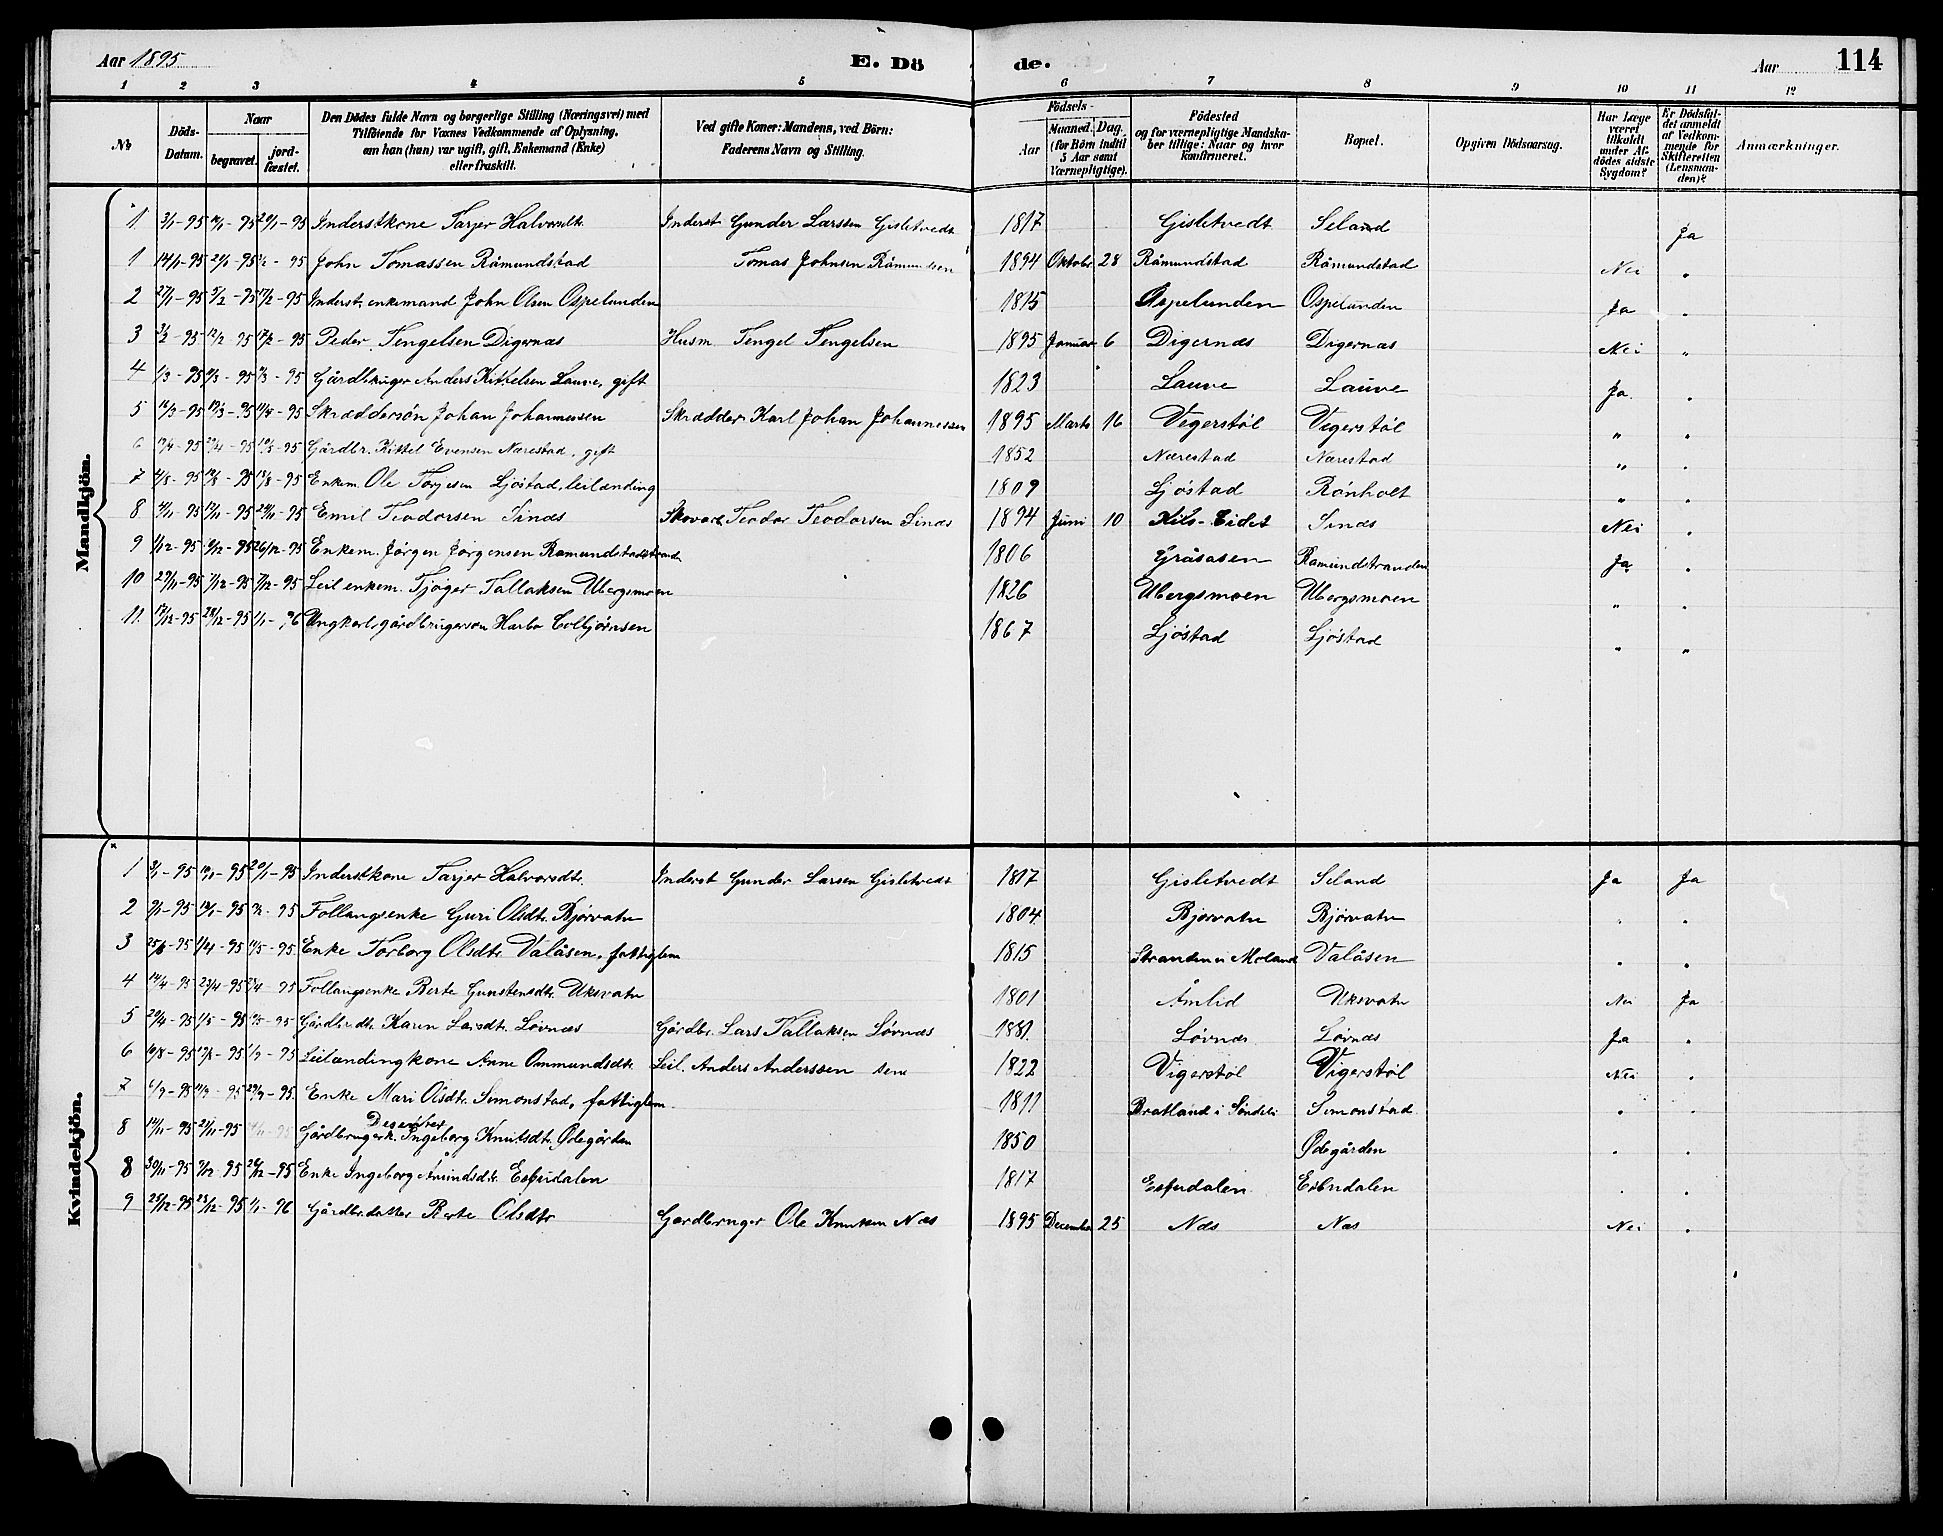 Aar 1895
E. Dö
de.
Aar
114
1 2 3 4 5 6 7 8 9 10 11 12
No
Döds-Datum.
Naar
begravet.
jord-fæstet.
Den Dödes fulde Navn og borgerlige Stilling (Næringsvei) med
Tilföiende for Voxnes Vedkommende af Oplysning,
om han (hun) var ugift, gift, Enkemand (Enke)
eller fraskilt.
Ved gifte Koner: Mandens, ved Börn:
Faderens Navn og Stilling.
Födsels-
Aar
Maaned. Dag.
(for Börn indtil
5 Aar samt
Værnepligtige).
Födested
og for værnepligtige Mandska-
ber tillige: Naar og hvor
konfirmeret.
Bopæl.
Opgiven Dödsaarsag.
Har Læge
været
tilkaldt
under Af-
dödes sidste
Sygdom?
Er Dödsfal-
det anmeldt
af Vedkom-
mende for
Skifteretten
(Lensman-
den)?
Anmærkninger.
Mandkjön.
1 3/1-95 20/1-95 Inderstkone Tarjer Halvorsdtr. Inderst Gunder Larssen Gisletvedt 1817 Gisletvedt Seland Ja
1 14/1-95 John Tomassen Råmundstad Tomas Johnsen 1894 Oktober 28 Råmundstad Råmundstad Nei "
2 27/1-95 5/2-95 17/2-95 Inderst. enkemand John Olsen Ospelunden 1815 Ospelunden Ospelunden Ja "
3 3/2-95 12/2-95 17/2-95 Peder Tengelsen Digernæs Husm. Tengel Tengelsen 1895 Januar 6 Digernæs Digernæs Nei "
4 1/3-95 Gårdbruger Anders Kittelsen Lauve, gift 1823 Lauve Lauve Ja "
5 Skræddersön Johan Johannessen Skrædder Karl Johan Johannessen 1895 Marts 16 Vegerstöl Vegerstöl " "
6 Gårdbr. Kittel Evensen Nærestad, gift 1852 Nærestad Nærestad " "
7 Enkem. Ole Torjesen Ljöstad, leilænding 1809 Ljöstad Rönholt " "
8 Emil Teodorsen Sinæs Teodor Teodorsen Sinæs 1894 Juni 10 Kils-Eidet Sinæs Nei "
9 26/12-95 Enkem. Jörgen Jörgensen Ramundstadstrand 1806 Gråsåsen Ramundstranden Ja "
10 29/11-95 7/12-95 7/12-95 Leil. enkem. Tjöger Tallaksen Ubergsmoen 1826 Ubergsmoen Ubergsmoen " "
11. 28/12-95 1/1-96 Ungkarl, gårdbrugersön Harbo Colbjörnsen 1867 Ljöstad Ljöstad " "
Kvindekjön.
1 3/1-95 20/1-95 Inderstkone Tarjer Halvorsdtr. Inderst Gunder Larsen Gisletvedt 1817 Gisletvedt Seland Ja Ja
2 Follaugsenke Guri Olsdtr. Björvatn 1804 Björvatn Björvatn " "
3 Enke Torborg Olsdtr. Valåsen, fattiglem 1815 Stranden i Moland Valåsen " "
4 14/4-95 23/4-95 Follaugsenke Berte Gunstensdtr. Uksvatn 1801 Åmlid Uksvatn Nei Ja
5 1/5-95 Gårdbr.dtr. Karen Larsdtr. Lövnæs Gårdbr. Lars Tallaksen Lövnæs 1881 Lövnæs Lövnæs Ja "
6 Leilændingkone Anne Ommundsdtr. Leil. Anders Anderssen sen. 1822 Vigerstöl Vigerstöl Nei "
7 6/9-95 29/9-95 Enke Mari Olsdtr. Simonstad, fattiglem 1811 Bratland i Söndeled Simonstad " "
8 14/11-95 21/11-95 Dissenter Gårdbrugerk. Ingeborg Knutsdtr. Ødegården 1850 Ødegården " "
8 30/11-95 26/12-95 Enke Ingeborg Åmundsdtr. Espudalen 1817 Espudalen Espudalen " "
9 25/12-95 1/1-96 Gårdbr.datter Berte Olsdtr. Gardbruger Ole Knutsen Næs 1895 December 25 Næs Næs Nei "